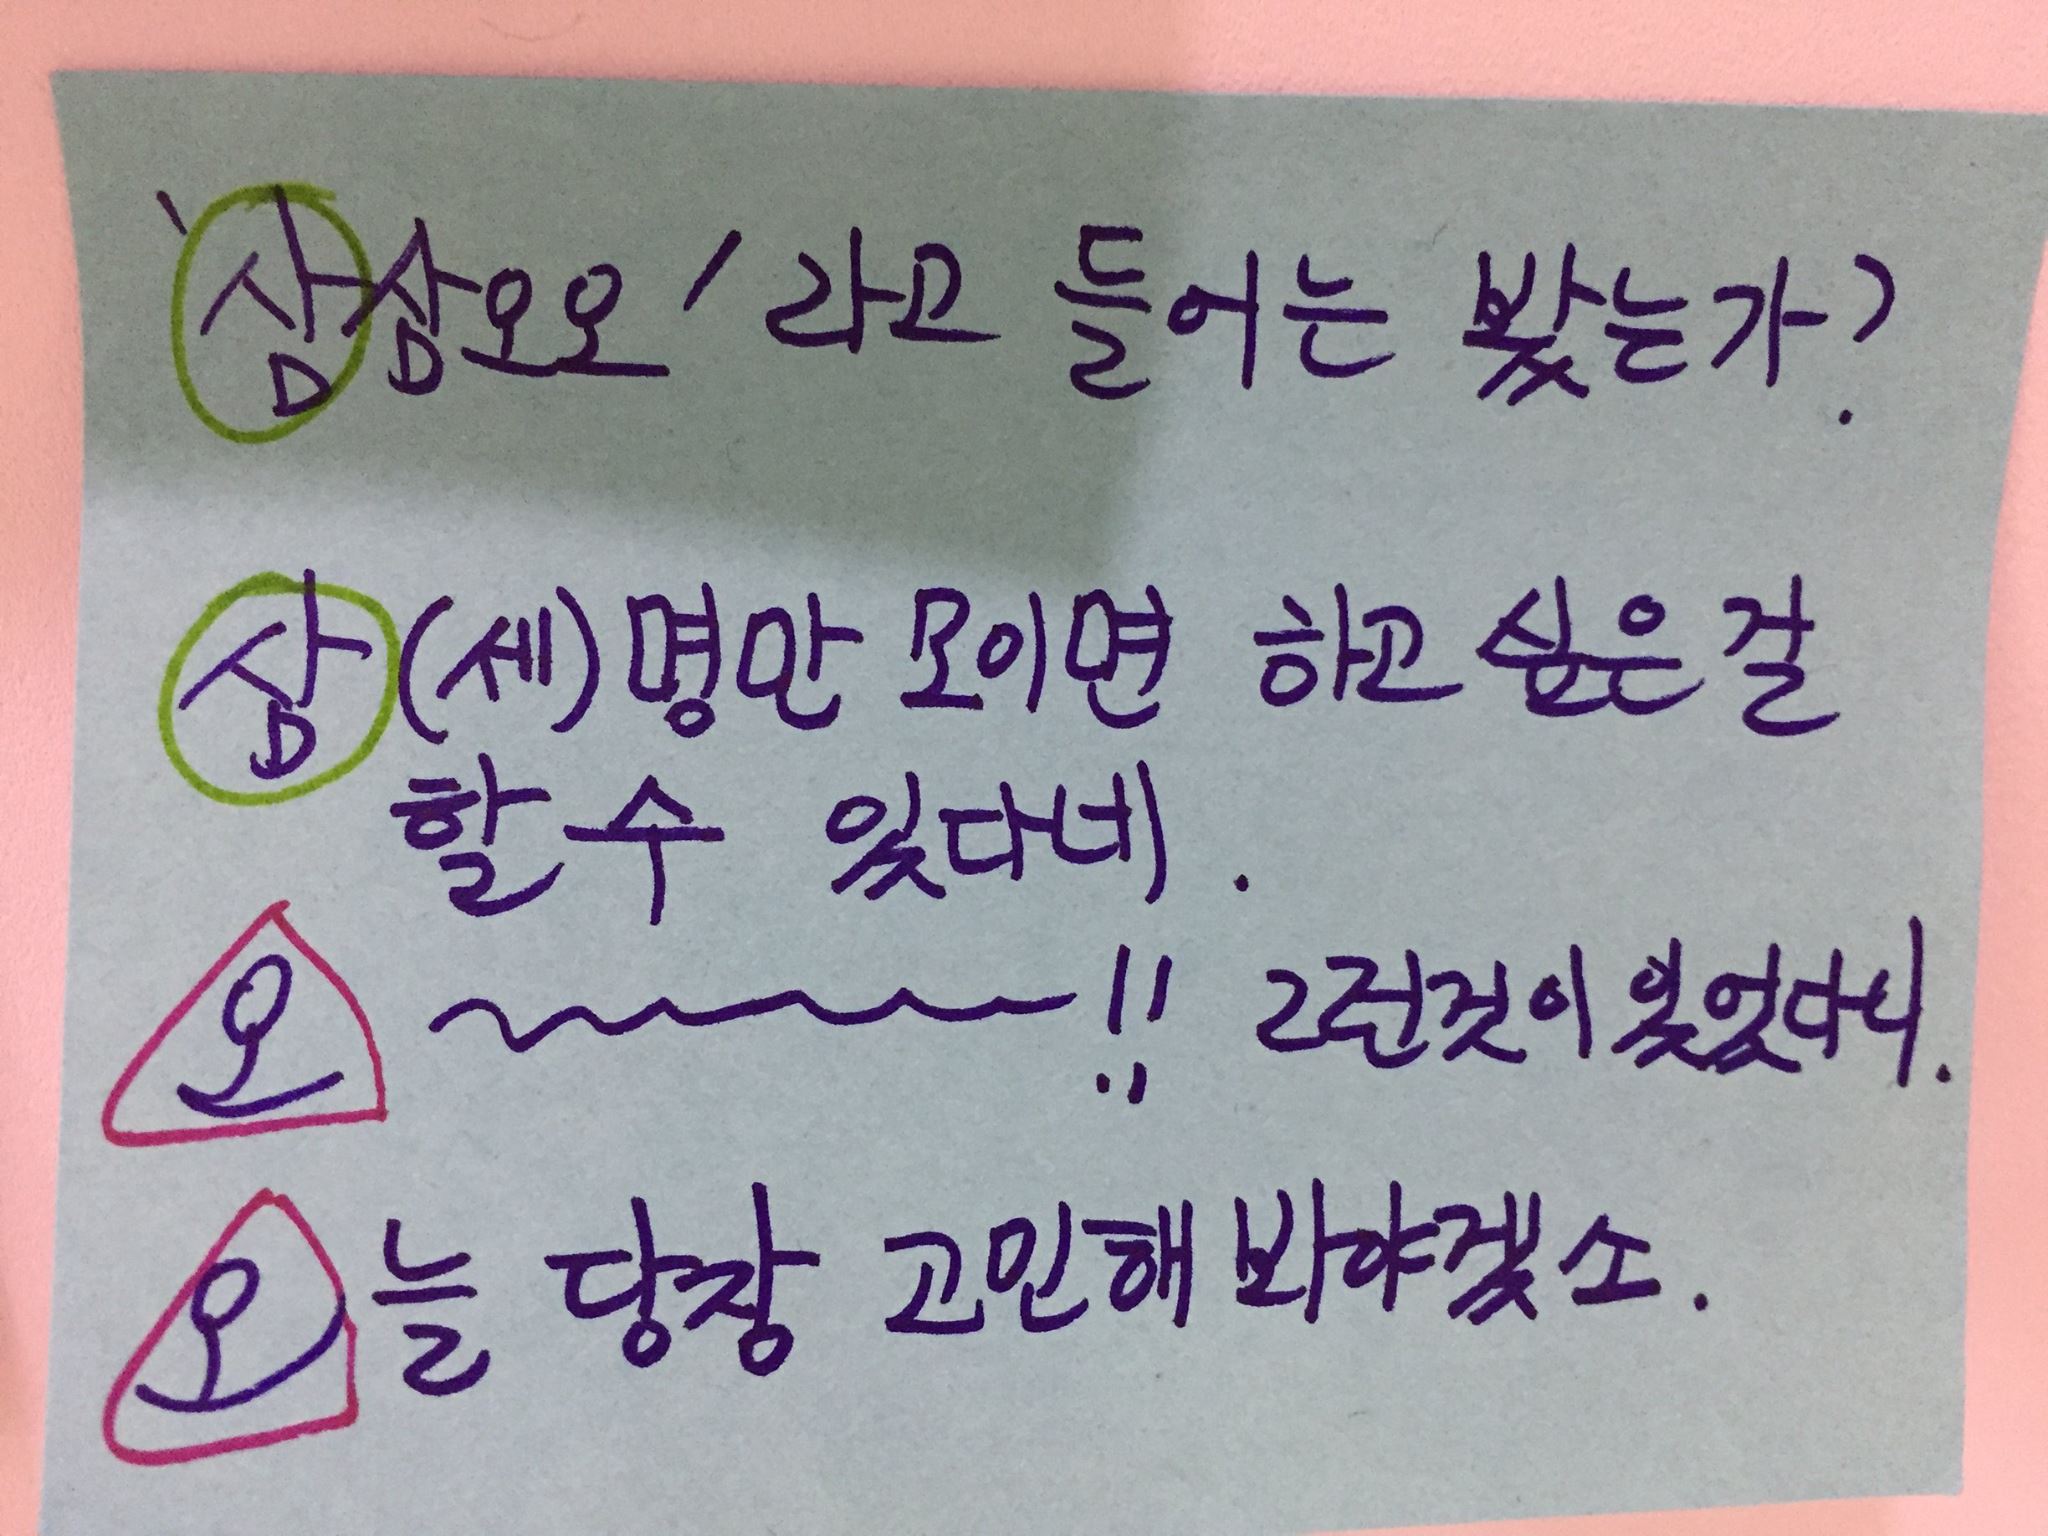 '삼삼오오'라고 들어는 봤는가?
삼(세)명만 모이면 하고 싶은걸
할 수 있다네.
오~~~~!! 그런것이 있었다니.
오늘 당장 고민해 봐야겠소.